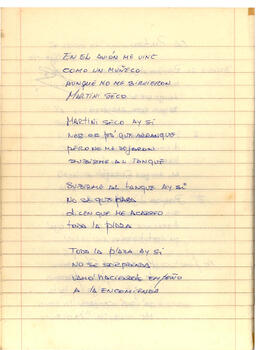 EN EL AVIÓN ME VINE
COMO UN MUÑECO
AUNQUE NO ME SIRVIERON
MARTINI SECO
MARTINI SECO AY SÍ
QUE ARRANQUE
PERO NO ME DEJARON
SUBIRME AL TANQUE
SUBIRME AL TANQUE AY SÍ
NO SE QUE PASA
DICEN QUE ME ACARREO
TODA LA PLAZA
TODA LA PLAZA AY SÍ
NO SE SORPRENDA
VAMO HACIENDOLE EMPEÑO
A LA ENCOMIENDA